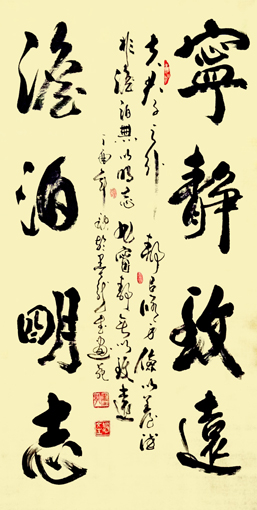 寧靜致遠
夫君子之行靜以修身儉以養德
非澹泊無以明志非寧靜無以致遠
丁酉年
澹泊明志